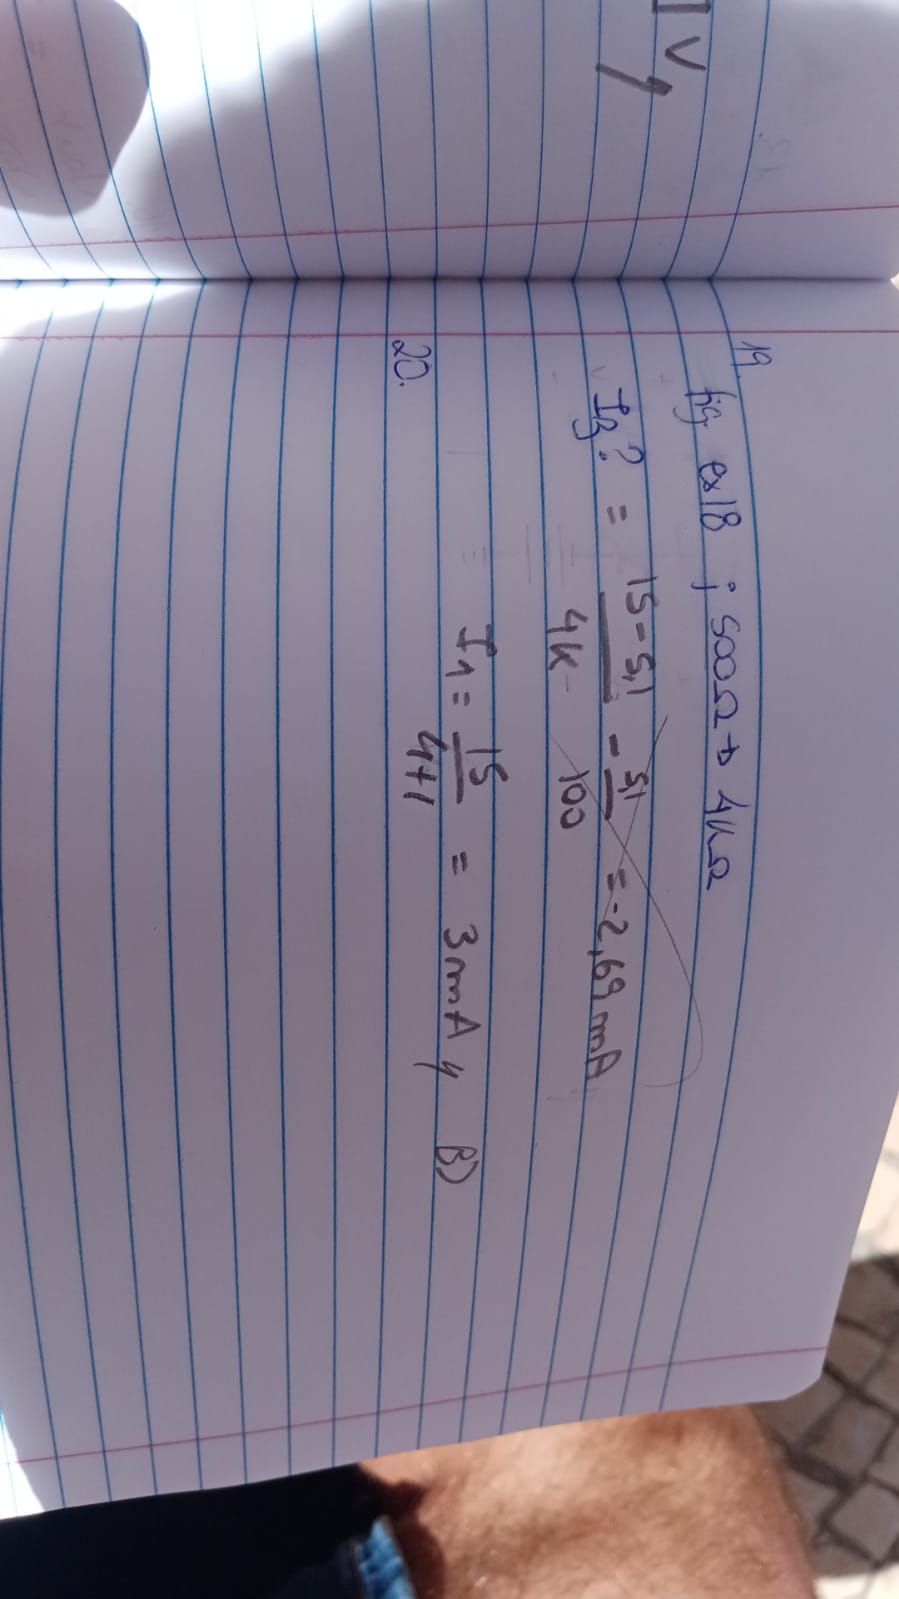 19.
fig ex18 ; 500Ω → 4kΩ
I3? = 15-5,1 / 4k - 5,1 / 100 = -2,69 mA
I1 = 15 / 4+1 = 3mA // B)
20.